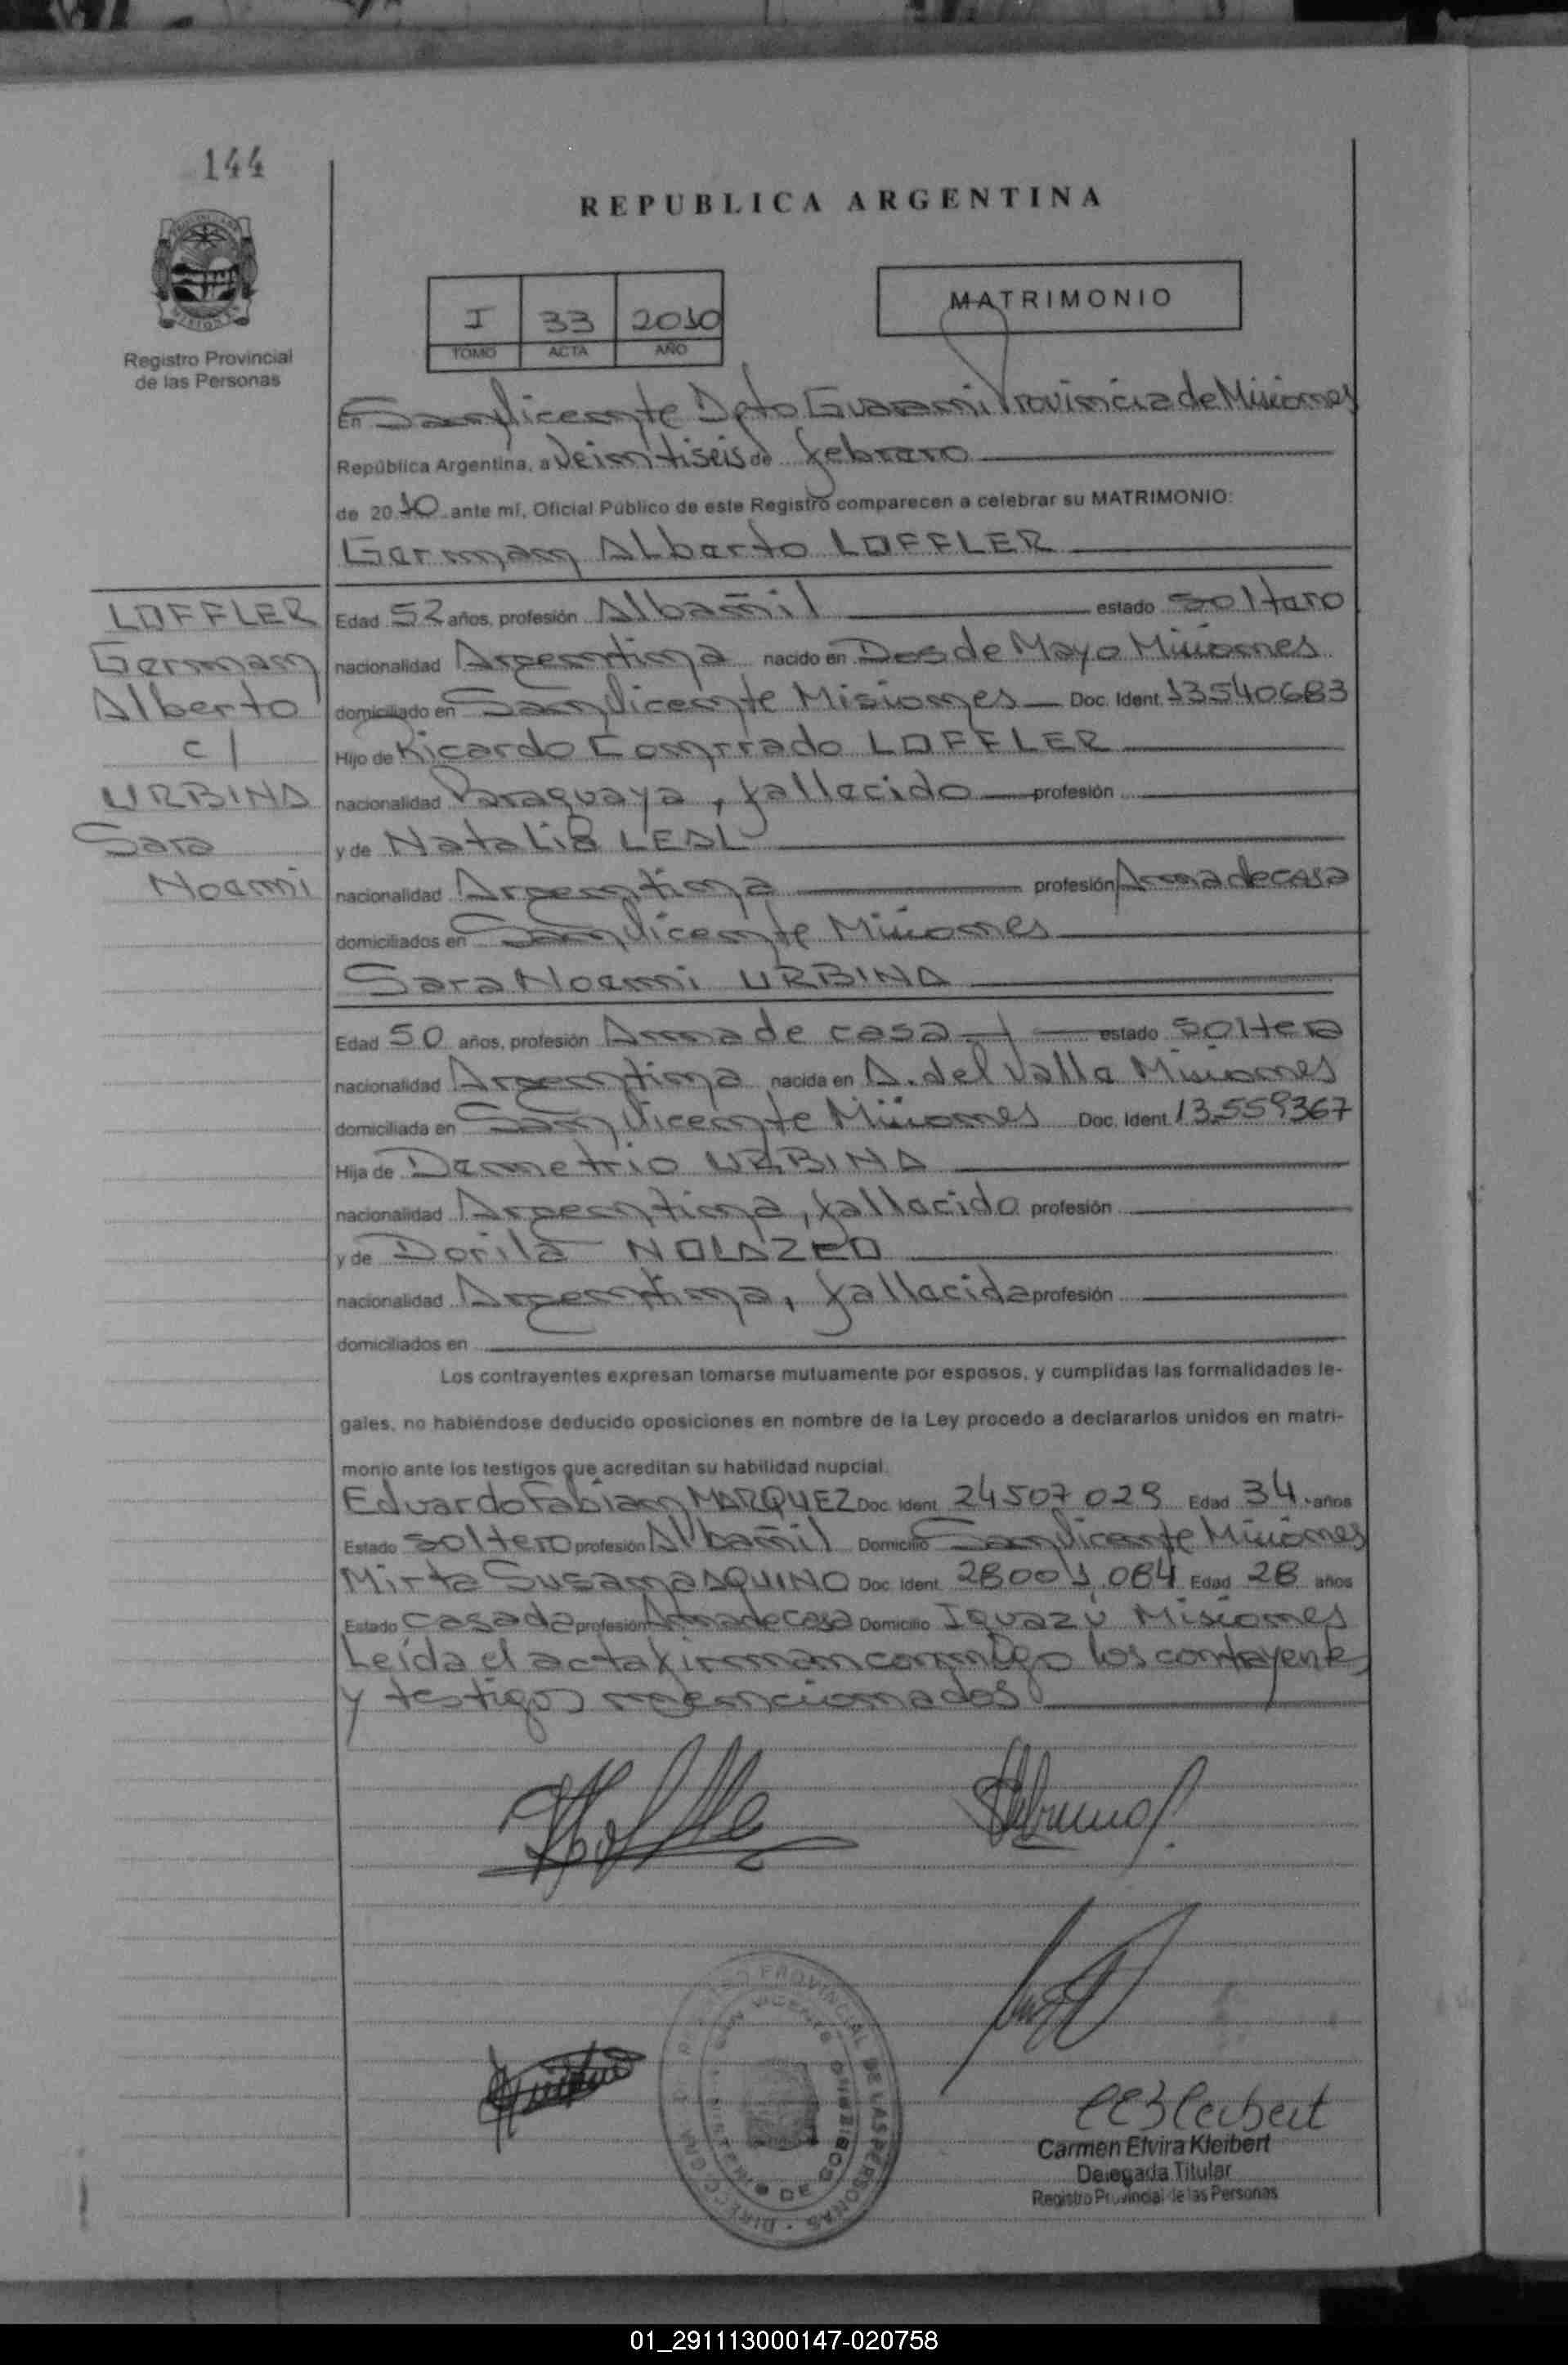 144
REPUBLICA ARGENTINA
MATRIMONIO
I 33 2010
TOMO ACTA AÑO
Registro Provincial
de las Personas
En San Vicente Dpto Guarani Provincia de Misiones
República Argentina, a Veintiseis de febrero
de 2010 ante mí, Oficial Público de este Registro comparecen a celebrar su MATRIMONIO:
German Alberto LOFFLER
LOFFLER
German
Alberto
c/
URBINA
Sara
Noemi
Edad 52 años, profesión Albañil estado soltero
nacionalidad Argentina nacido en Dos de Mayo Misiones
domiciliado en San Vicente Misiones Doc. Ident. 13540683
Hijo de Ricardo Conrrado LOFFLER
nacionalidad Paraguaya, fallecido profesión
y de Natalia LEAL
nacionalidad Argentina profesión Ama de casa
domiciliados en San Vicente Misiones
Sara Noemi URBINA
Edad 50 años, profesión Ama de casa estado soltera
nacionalidad Argentina nacida en A. del Valle Misiones
domiciliada en San Vicente Misiones Doc. Ident. 13559367
Hija de Demetrio URBINA
nacionalidad Argentina, fallecido profesión
y de Dorila NOLAZCO
nacionalidad Argentina, fallecida profesión
domiciliados en
Los contrayentes expresan tomarse mutuamente por esposos, y cumplidas las formalidades le-
gales, no habiéndose deducido oposiciones en nombre de la Ley procedo a declararlos unidos en matri-
monio ante los testigos que acreditan su habilidad nupcial.
Eduardo Fabian MARQUEZ Doc. Ident. 24507029 Edad 34 años
Estado soltero profesión Albañil Domicilio San Vicente Misiones
Mirta Susana AQUINO Doc. Ident. 28001.084 Edad 28 años
Estado casada profesión Ama de casa Domicilio Iguazú Misiones
Leída el acta firman conmigo los contrayentes
y testigos mencionados
Carmen Elvira Kleibert
Delegada Titular
Registro Provincial de las Personas
01_291113000147-020758